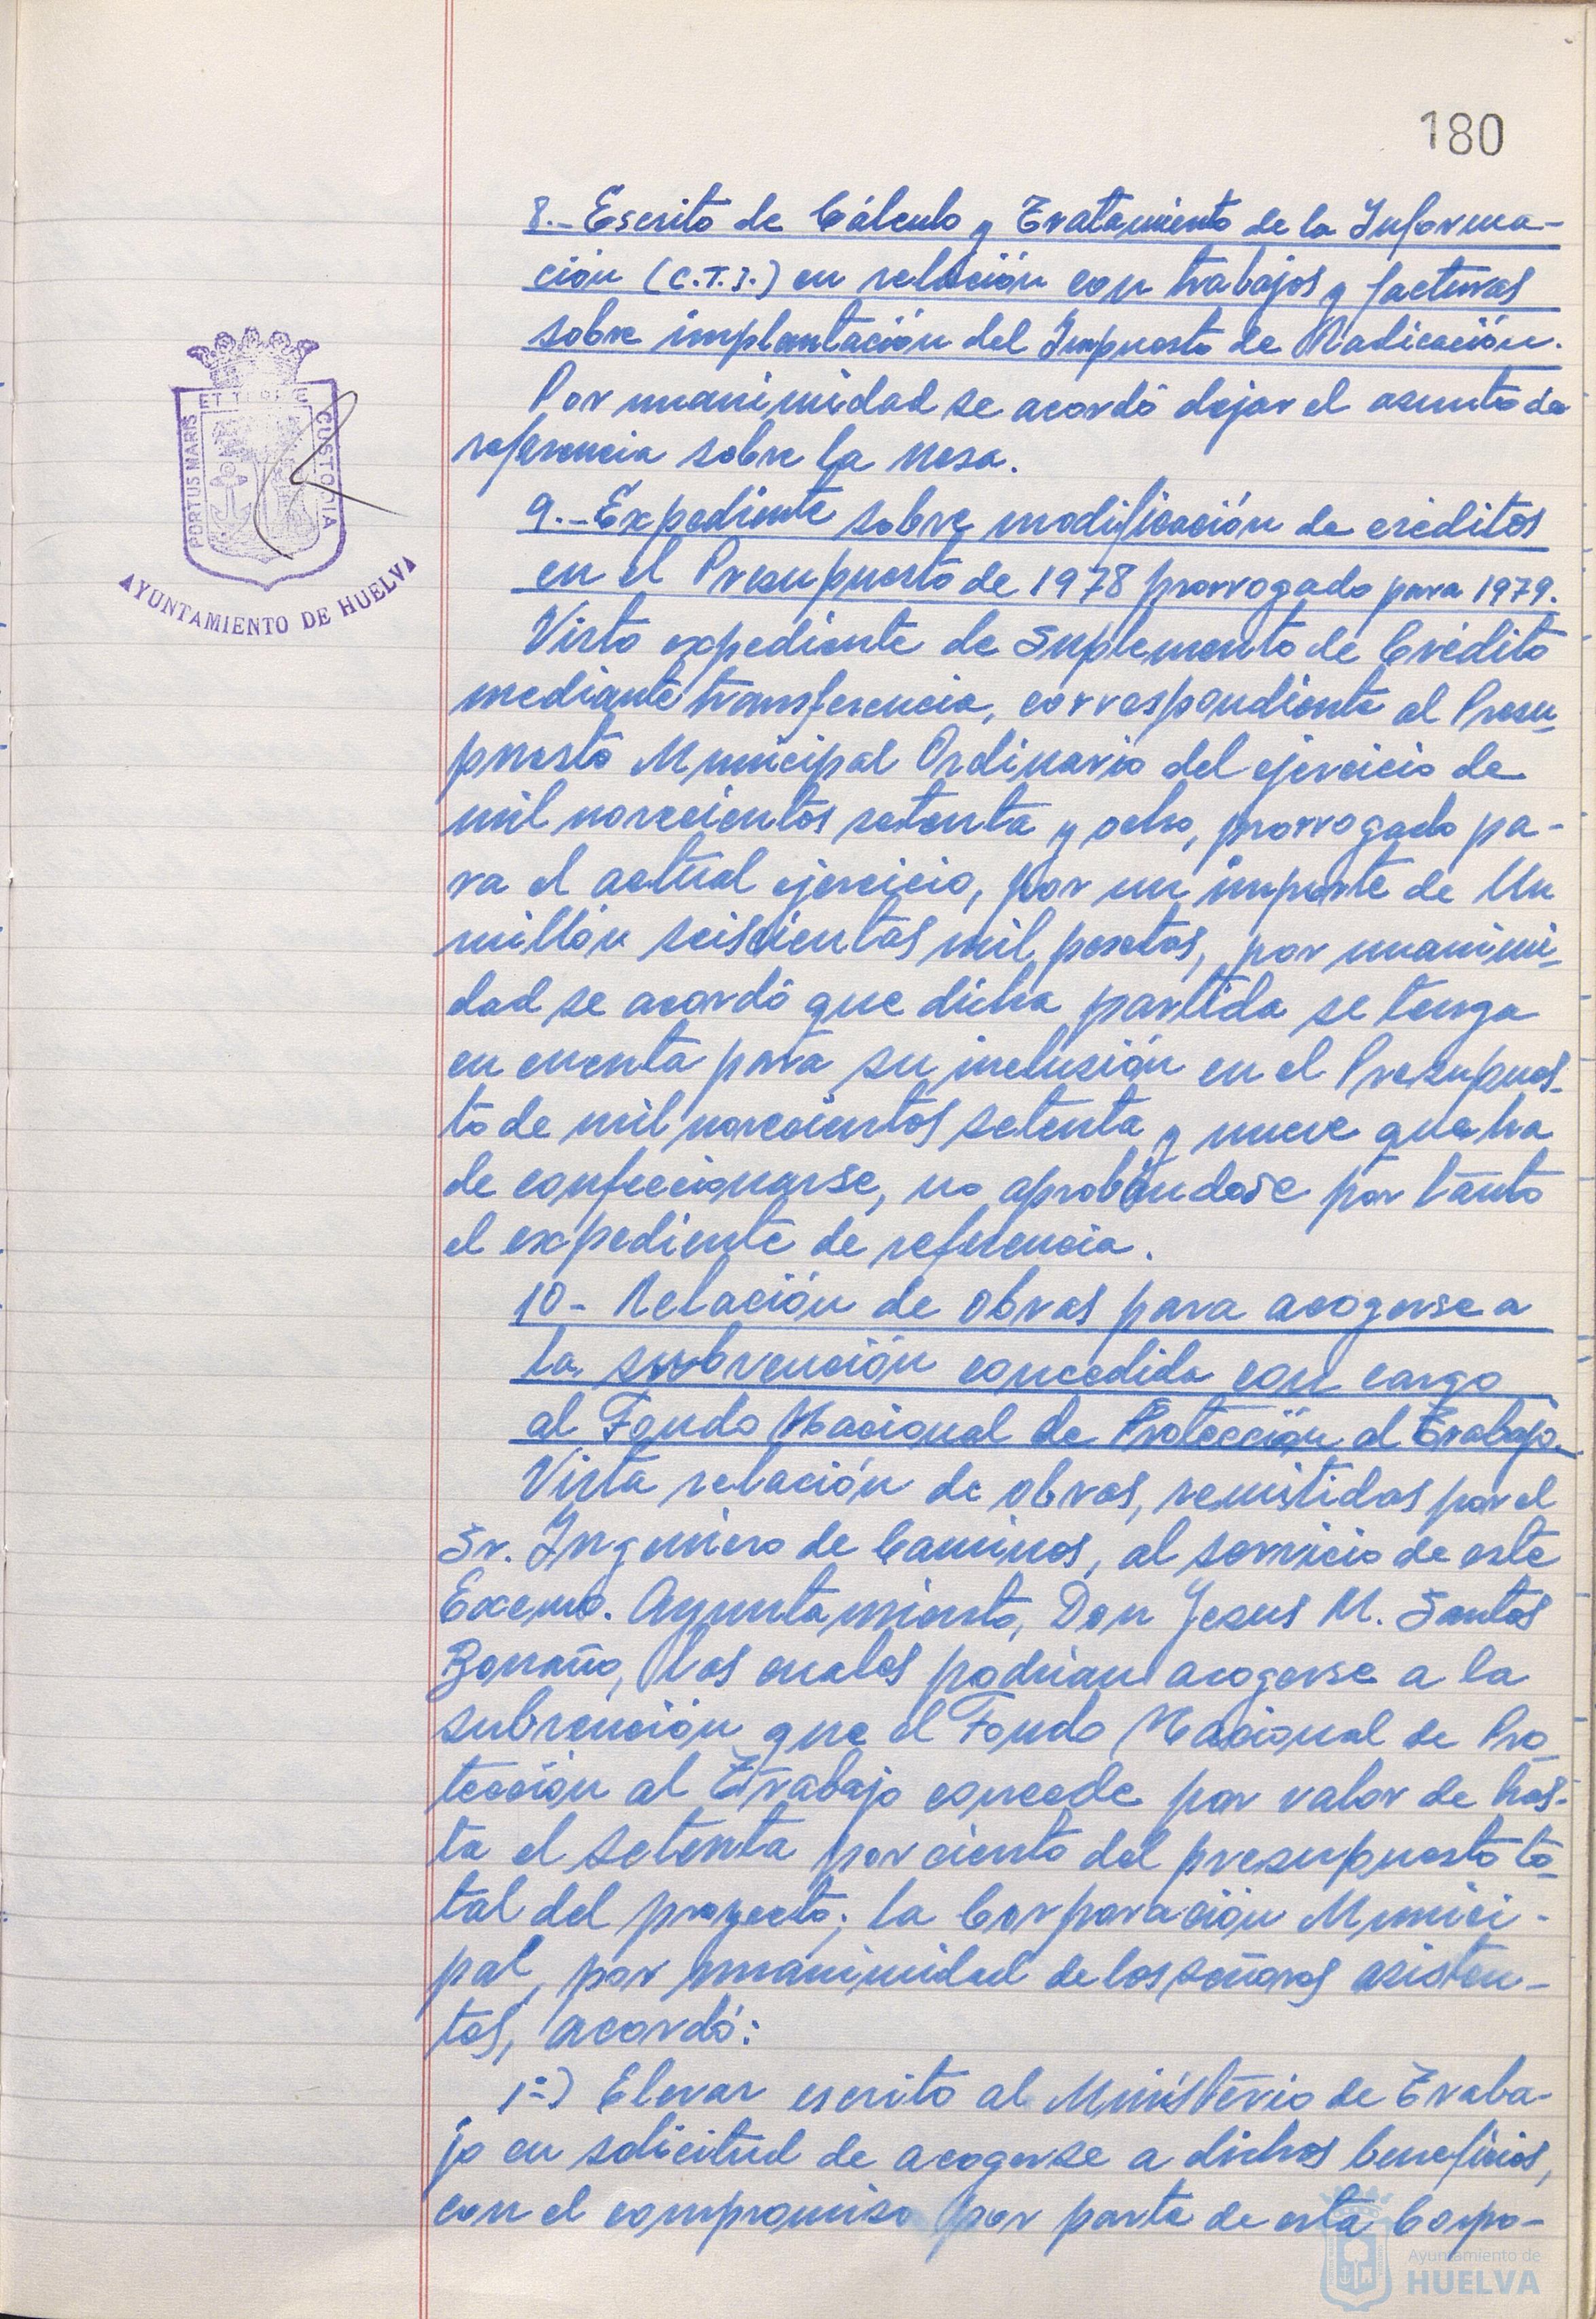 180
8.- Escrito de Cálculo y Tratamiento de la Informa-
ción (C.T.I.) en relación con trabajos y facturas
sobre implantación del Impuesto de Radicación.
Por unanimidad se acordó dejar el asunto de
referencia sobre la Mesa.
9.- Expediente sobre modificación de créditos
en el Presupuesto de 1978 prorrogado para 1979.
Visto expediente de Suplemento de Crédito
mediante transferencia, correspondiente al Presu-
puesto Municipal Ordinario del ejercicio de
mil novecientos setenta y ocho, prorrogado pa-
ra el actual ejercicio, por un importe de Un
millón seiscientas mil pesetas, por unanimi-
dad se acordó que dicha partida se tenga
en cuenta para su inclusión en el Presupues-
to de mil novecientos setenta y nueve que ha
de confeccionarse, no aprobándose por tanto
el expediente de referencia.
10- Relación de obras para acogerse a
la subvención concedida con cargo
al Fondo Nacional de Protección al Trabajo.
Vista relación de obras, remitidas por el
Sr. Ingeniero de Caminos, al servicio de este
Excmo. Ayuntamiento, Don Jesus M. Santos
Borraño, las cuales podrían acogerse a la
subvención que el Fondo Nacional de Pro-
tección al Trabajo concede por valor de has-
ta el setenta por ciento del presupuesto to-
tal del proyecto; la Corporación Munici-
pal, por unanimidad de los señores asisten-
tes, acordó:
1º) Elevar escrito al Ministerio de Traba-
jo en solicitud de acogerse a dichos beneficios,
con el compromiso por parte de esta Corpo-
PORTUS MARIS
ET TERRE
CUSTODIA
AYUNTAMIENTO DE HUELVA
Ayuntamiento de
HUELVA